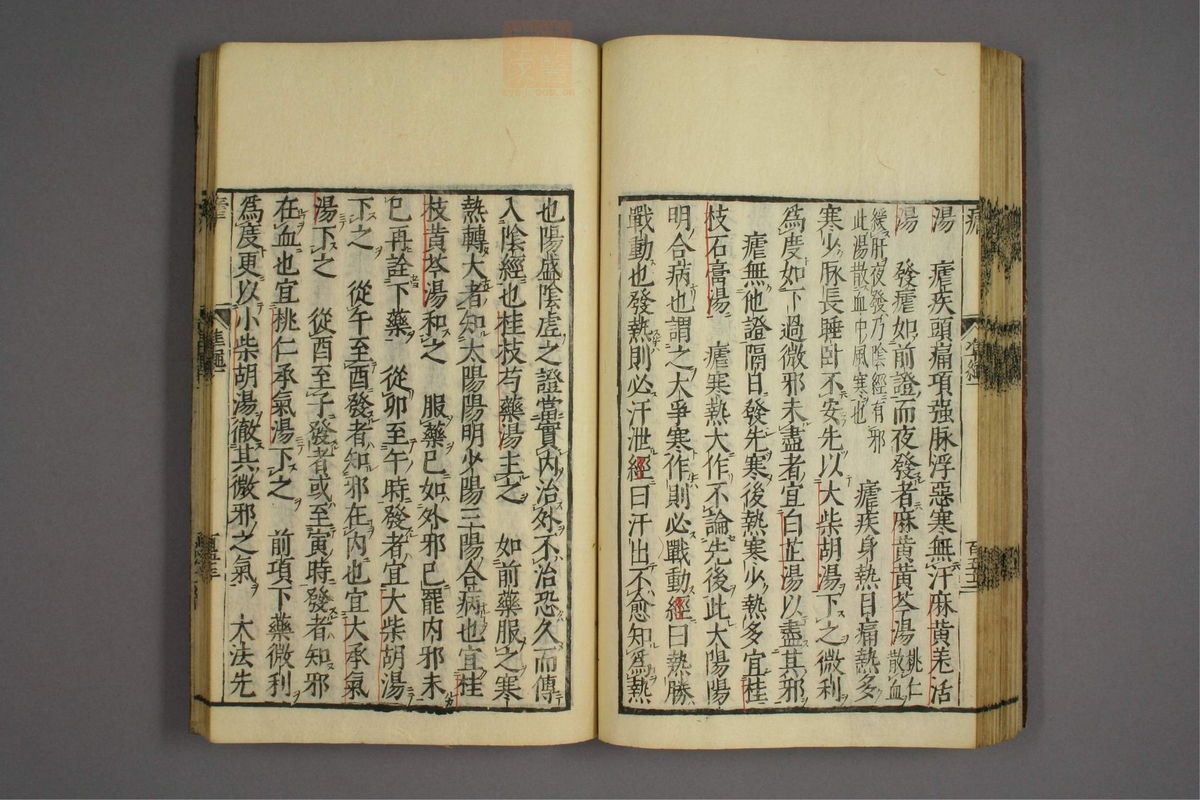 湯　瘧疾頭痛項強脉浮惡寒無汗麻黄羌活
湯　發瘧如前證而夜發者麻黄黄芩湯桃仁散血
緩肝夜發乃陰經有邪
此湯散血中風寒也
瘧疾身熱目痛熱多
寒少脉長睡卧不安先以大柴胡湯下之微利
爲度如下過微邪未盡者宜白芷湯以盡其邪
瘧無他證隔日發先寒後熱寒少熱多宜桂
枝石膏湯　瘧寒熱大作不論先後此太陽陽
明合病也謂之大爭寒作則必戰動經曰熱勝
戰動也發熱則必汗泄經曰汗出不愈知爲熱
也陽盛陰虚之證當實内治外不治恐久而傳
入陰經也桂枝芍藥湯主之　如前藥服之寒
熱轉大者知太陽陽明少陽三陽合病也宜桂
枝黄芩湯和之　服藥已如外邪已罷内邪未
已再詮下藥　從卯至午時發者宜大柴胡湯
下之　從午至酉發者知邪在内也宜大承氣
湯下之　從酉至子發者或至寅時發者知邪
在血也宜桃仁承氣湯下之　前項下藥微利
爲度更以小柴胡湯徹其微邪之氣　大法先